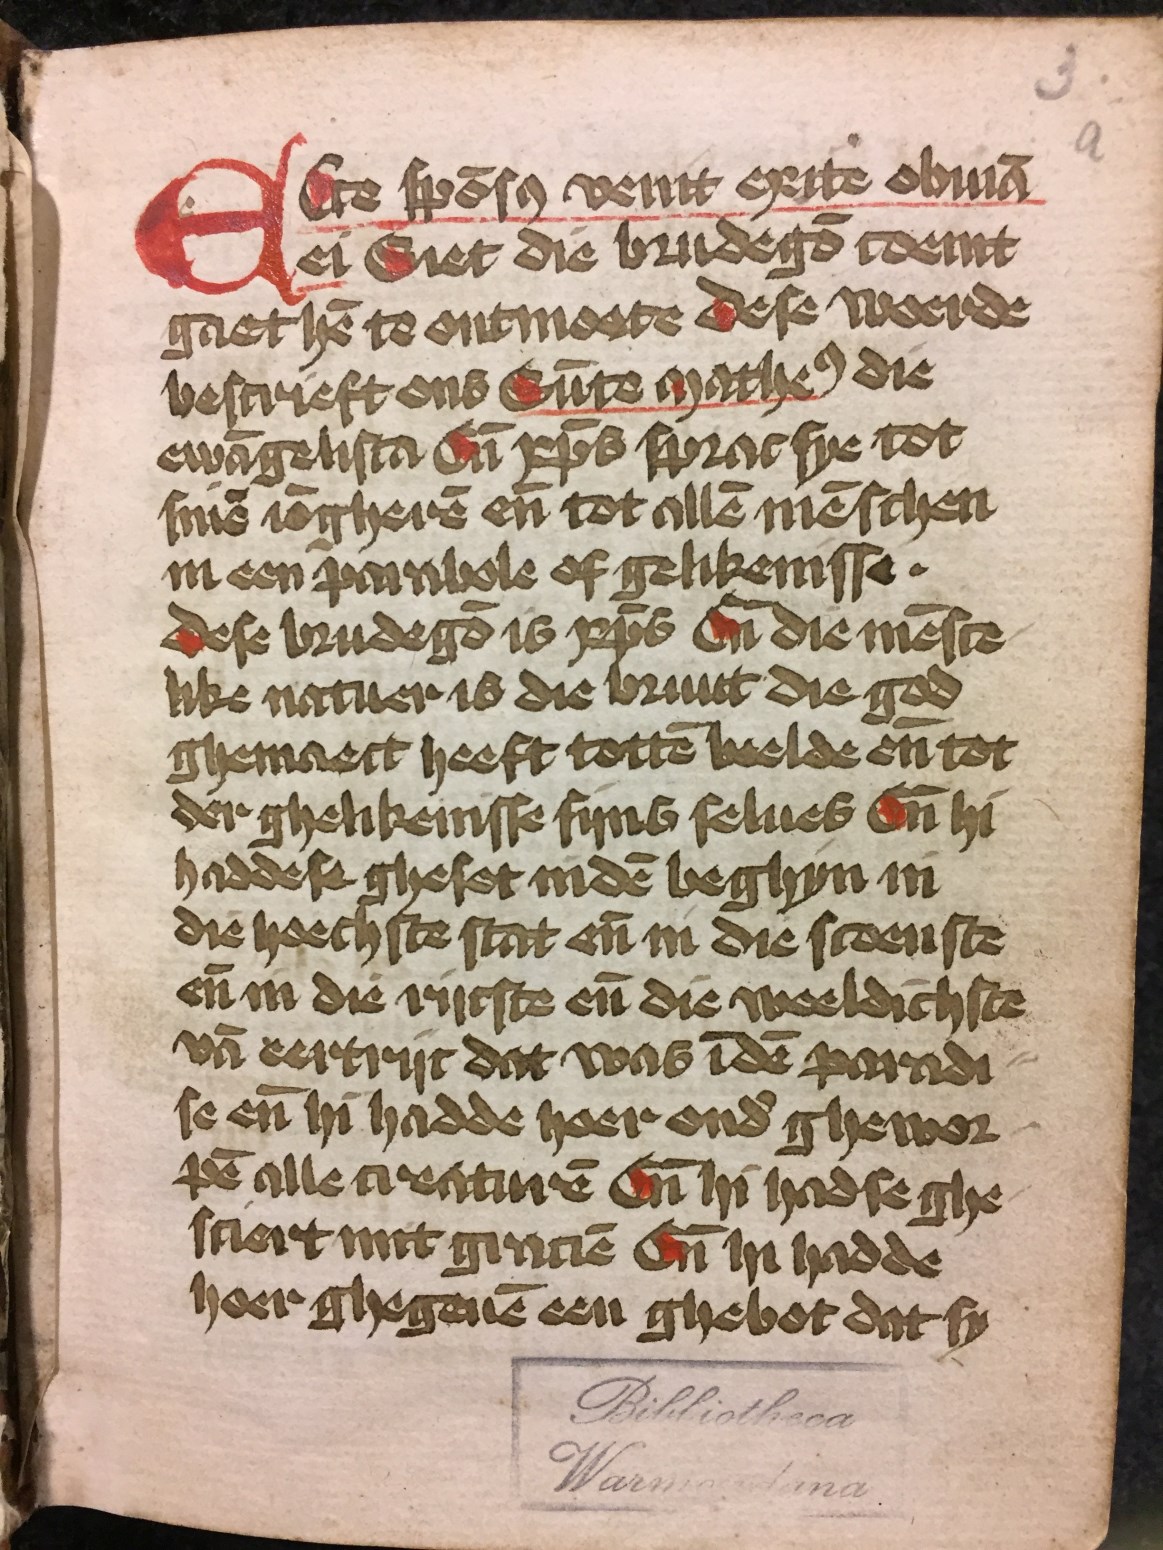 3.
a
ECce spōsꝰ venit exite obuiā
ei Siet die brudegō coemt
gaet hē te ontmoete dese woerde
bescrieft ons Sūte matheꝰ die
ewāgelista En̄ xp̄s sprac sye tot
sinē iōgherē en̄ tot allē mēschen
in een parabole of gelikenisse.
dese brudegō is xp̄s En̄ die mēsce
like natuer is die bruut die god
ghemaect heeft tottē beelde en̄ tot
der ghelikenisse sijns selues En̄ hi
haddese gheset indē beghyn in
die hoechste stat en̄ in die scoenste
en̄ in die rijcste en̄ die weeldichste
vā eertrijc dat was ī dē paradi
se en̄ hi hadde hoer ond' ghewor
pē alle creaturē En̄ hi hadse ghe
sciert mit graciē En̄ hi hadde
hoer ghegeuē een ghebot dat sy
Bibliotheca